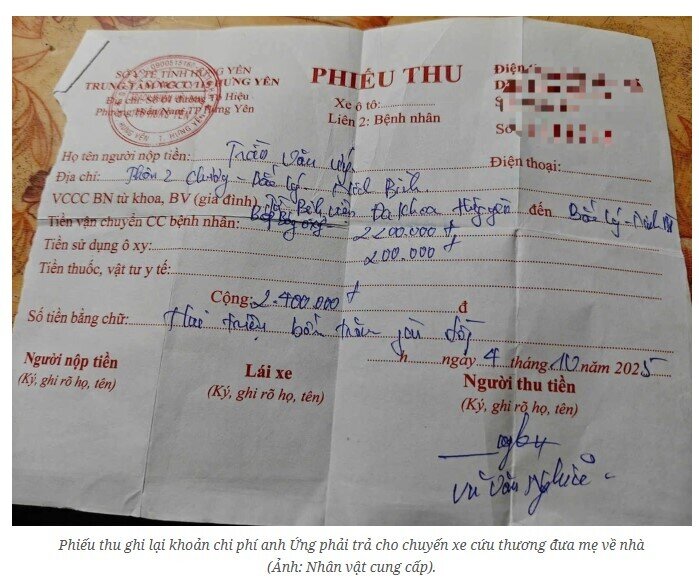 SỞ Y TẾ TỈNH HƯNG YÊN
TRUNG TÂM VCCC 115 HƯNG YÊN
Địa chỉ: Số 01 đường Tô Hiệu
Phường Hiến Nam TP Hưng Yên
PHIẾU THU
Xe ô tô:
Liên 2: Bệnh nhân
Điện
Số
Họ tên người nộp tiền: Trần Văn Điện thoại:
Địa chỉ: Thôn 2 - Bắc Lý - Ninh Bình
VCCC BN từ khoa, BV (gia đình) Bệnh viện Đa Khoa Hưng Yên đến Bắc Lý - Ninh
Tiền vận chuyển CC bệnh nhân: 2200.000 đ
Tiền sử dụng ô xy: 200.000 đ
Tiền thuốc, vật tư y tế:
Cộng: 2.400.000 đ đ
Số tiền bằng chữ: Hai triệu bốn trăm đồng
h ngày 4 tháng 10 năm 2025
Người nộp tiền
(Ký, ghi rõ họ, tên)
Lái xe
(Ký, ghi rõ họ, tên)
Người thu tiền
(Ký, ghi rõ họ, tên)
Vũ Văn
Phiếu thu ghi lại khoản chi phí anh Ứng phải trả cho chuyến xe cứu thương đưa mẹ về nhà
(Ảnh: Nhân vật cung cấp).